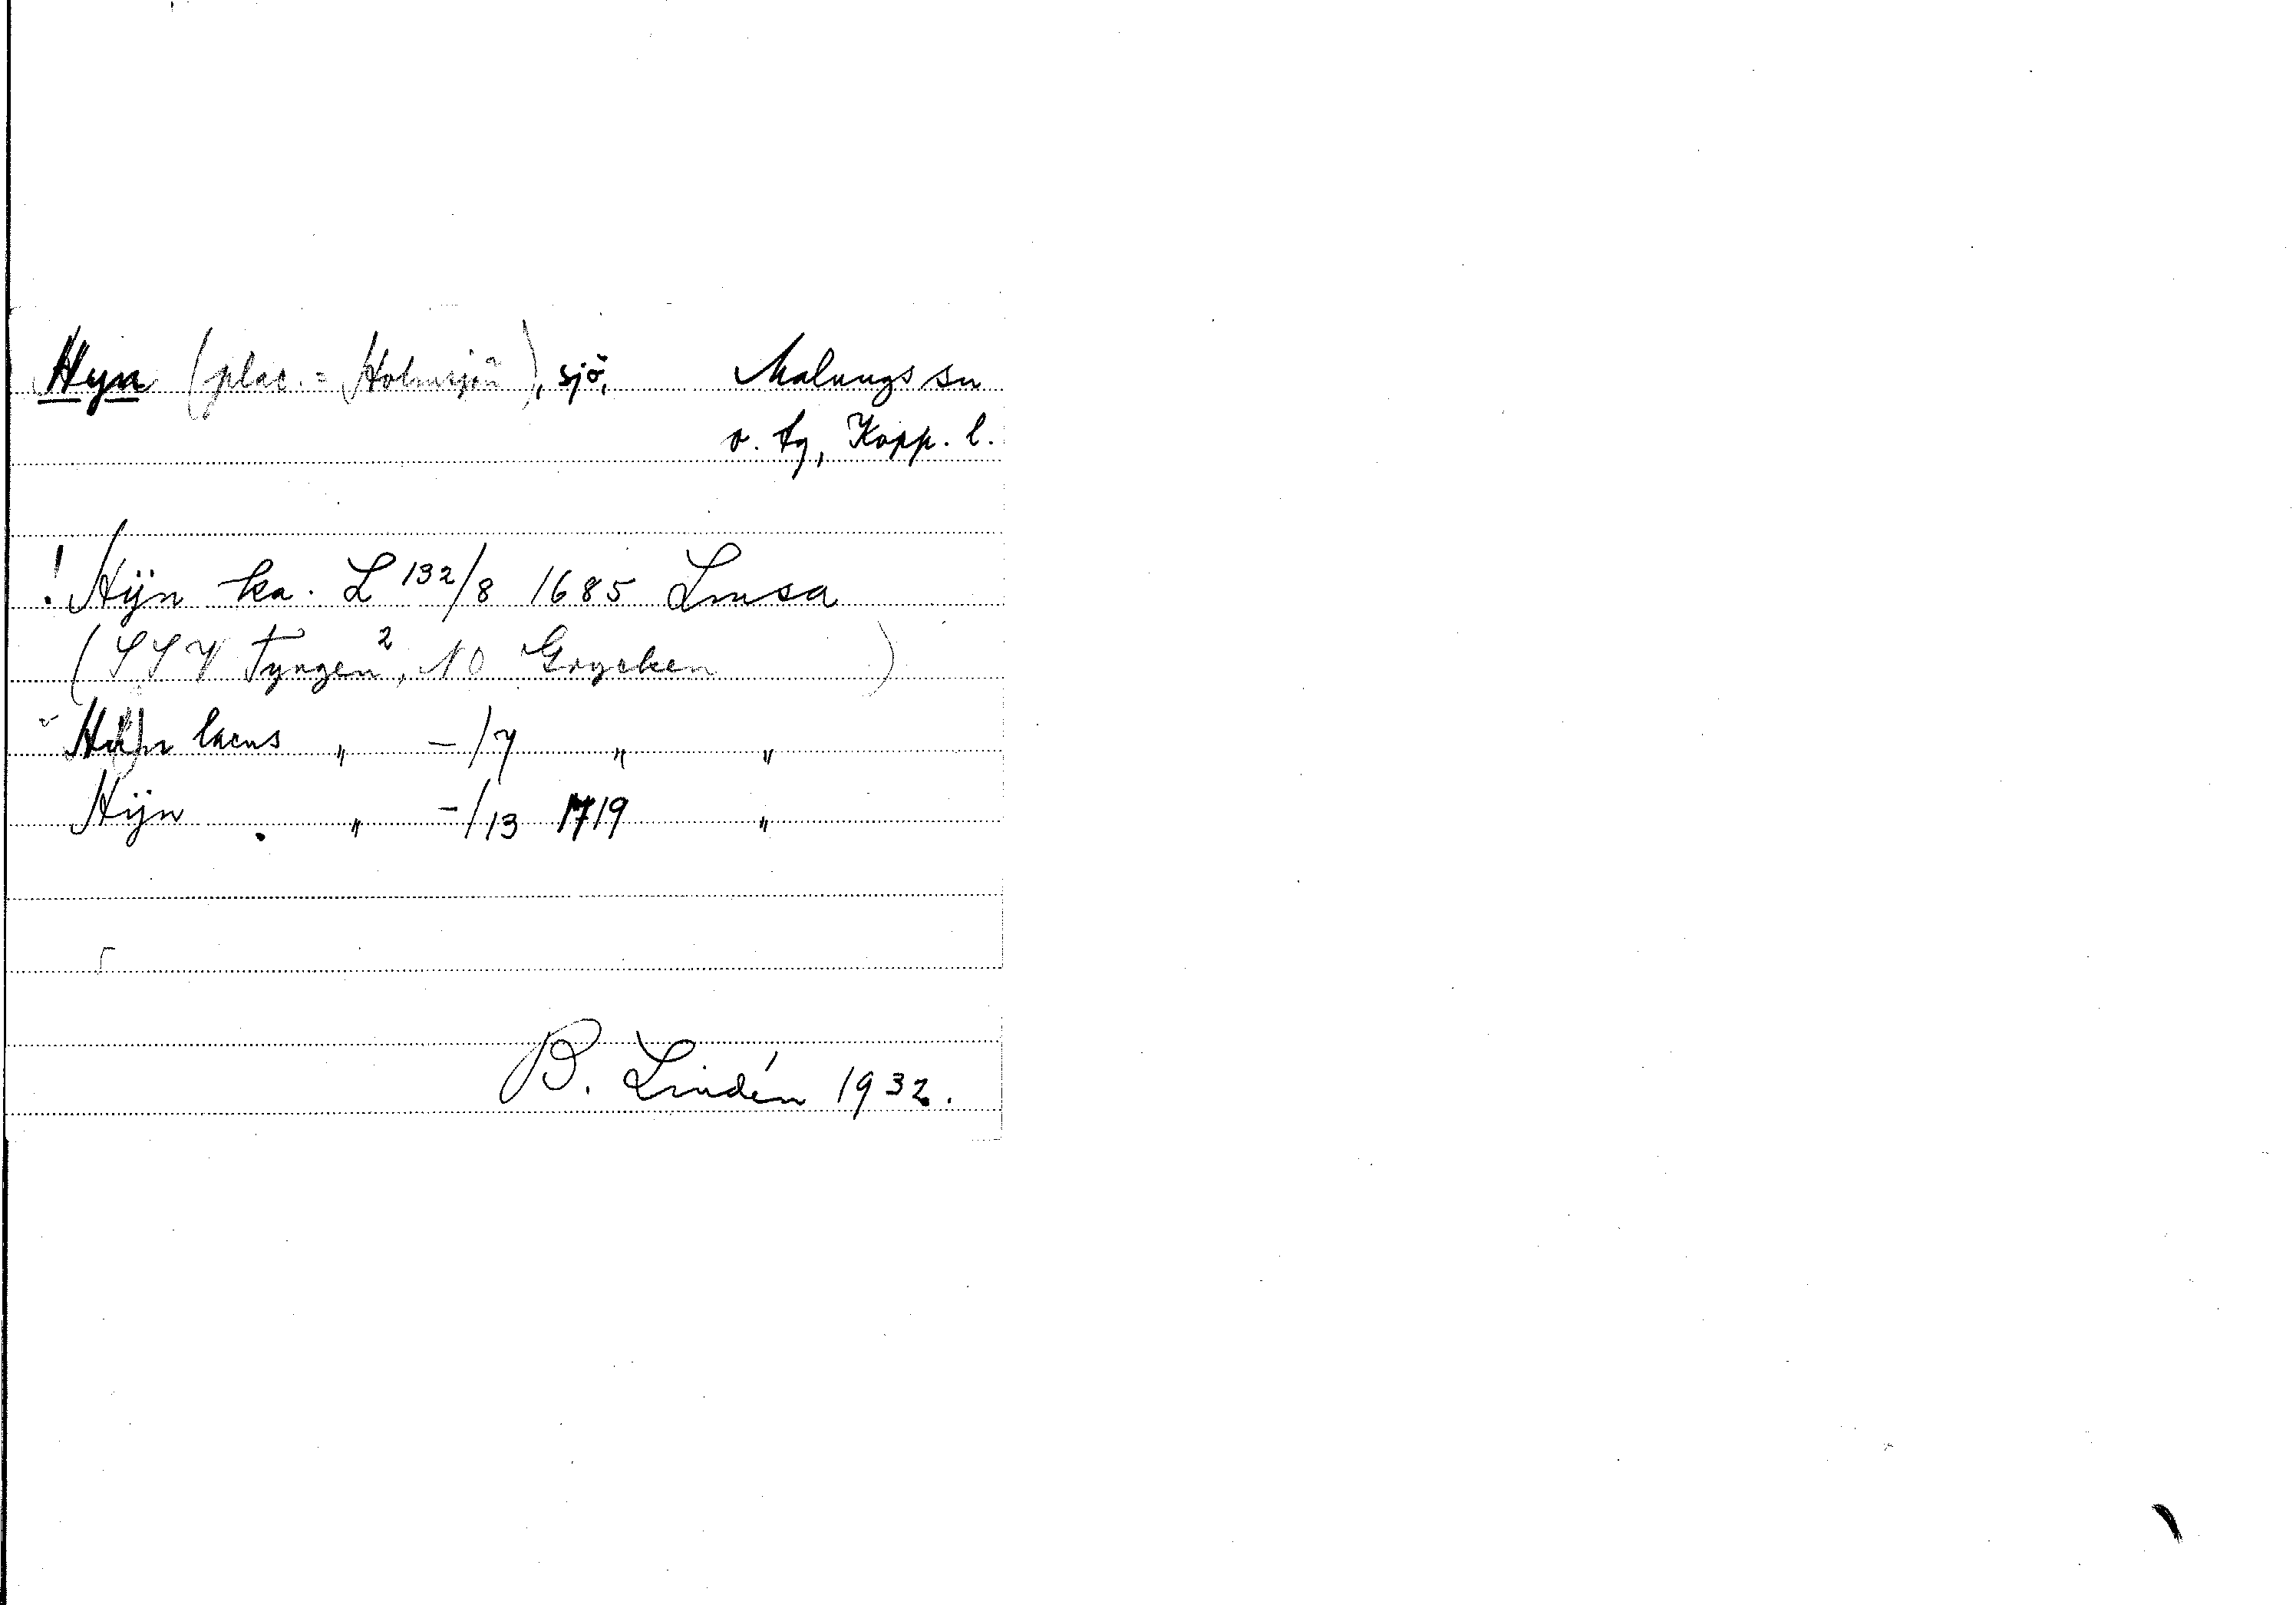 Hyn (plac. = Holmsjön), sjö, Malungs sn
o. tg, Kopp. l.
! Hÿn ka. L 132/8 1685 Lmsa
(SSV Tyngen², NO Grycken )
lacus " -/7 " "
Hÿn " -/13 1719 "
B. Lindén 1932.